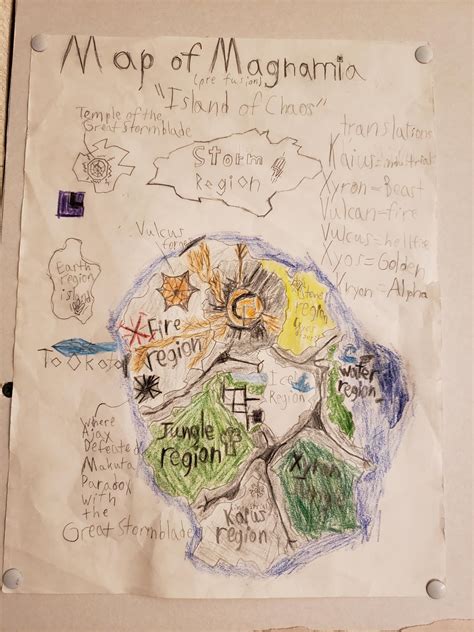 Map of Magnamia
(pre fusion)
"Island of Chaos"
Temple of the
Great Stormblade
Storm
Region
translations
Kaius=
Xyron=Beast
Vulcan=fire
Vulcus=
Xyos=Golden
Xryon=Alpha
Vulcus
Earth
region
island
Fire
region
Stone
region
Ice
Region
water
region
To Okoto
Jungle
region
Xyron
Kaius
region
Where
Ajax
Defeated
Makuta
Paradox
with
the
Great Stormblade